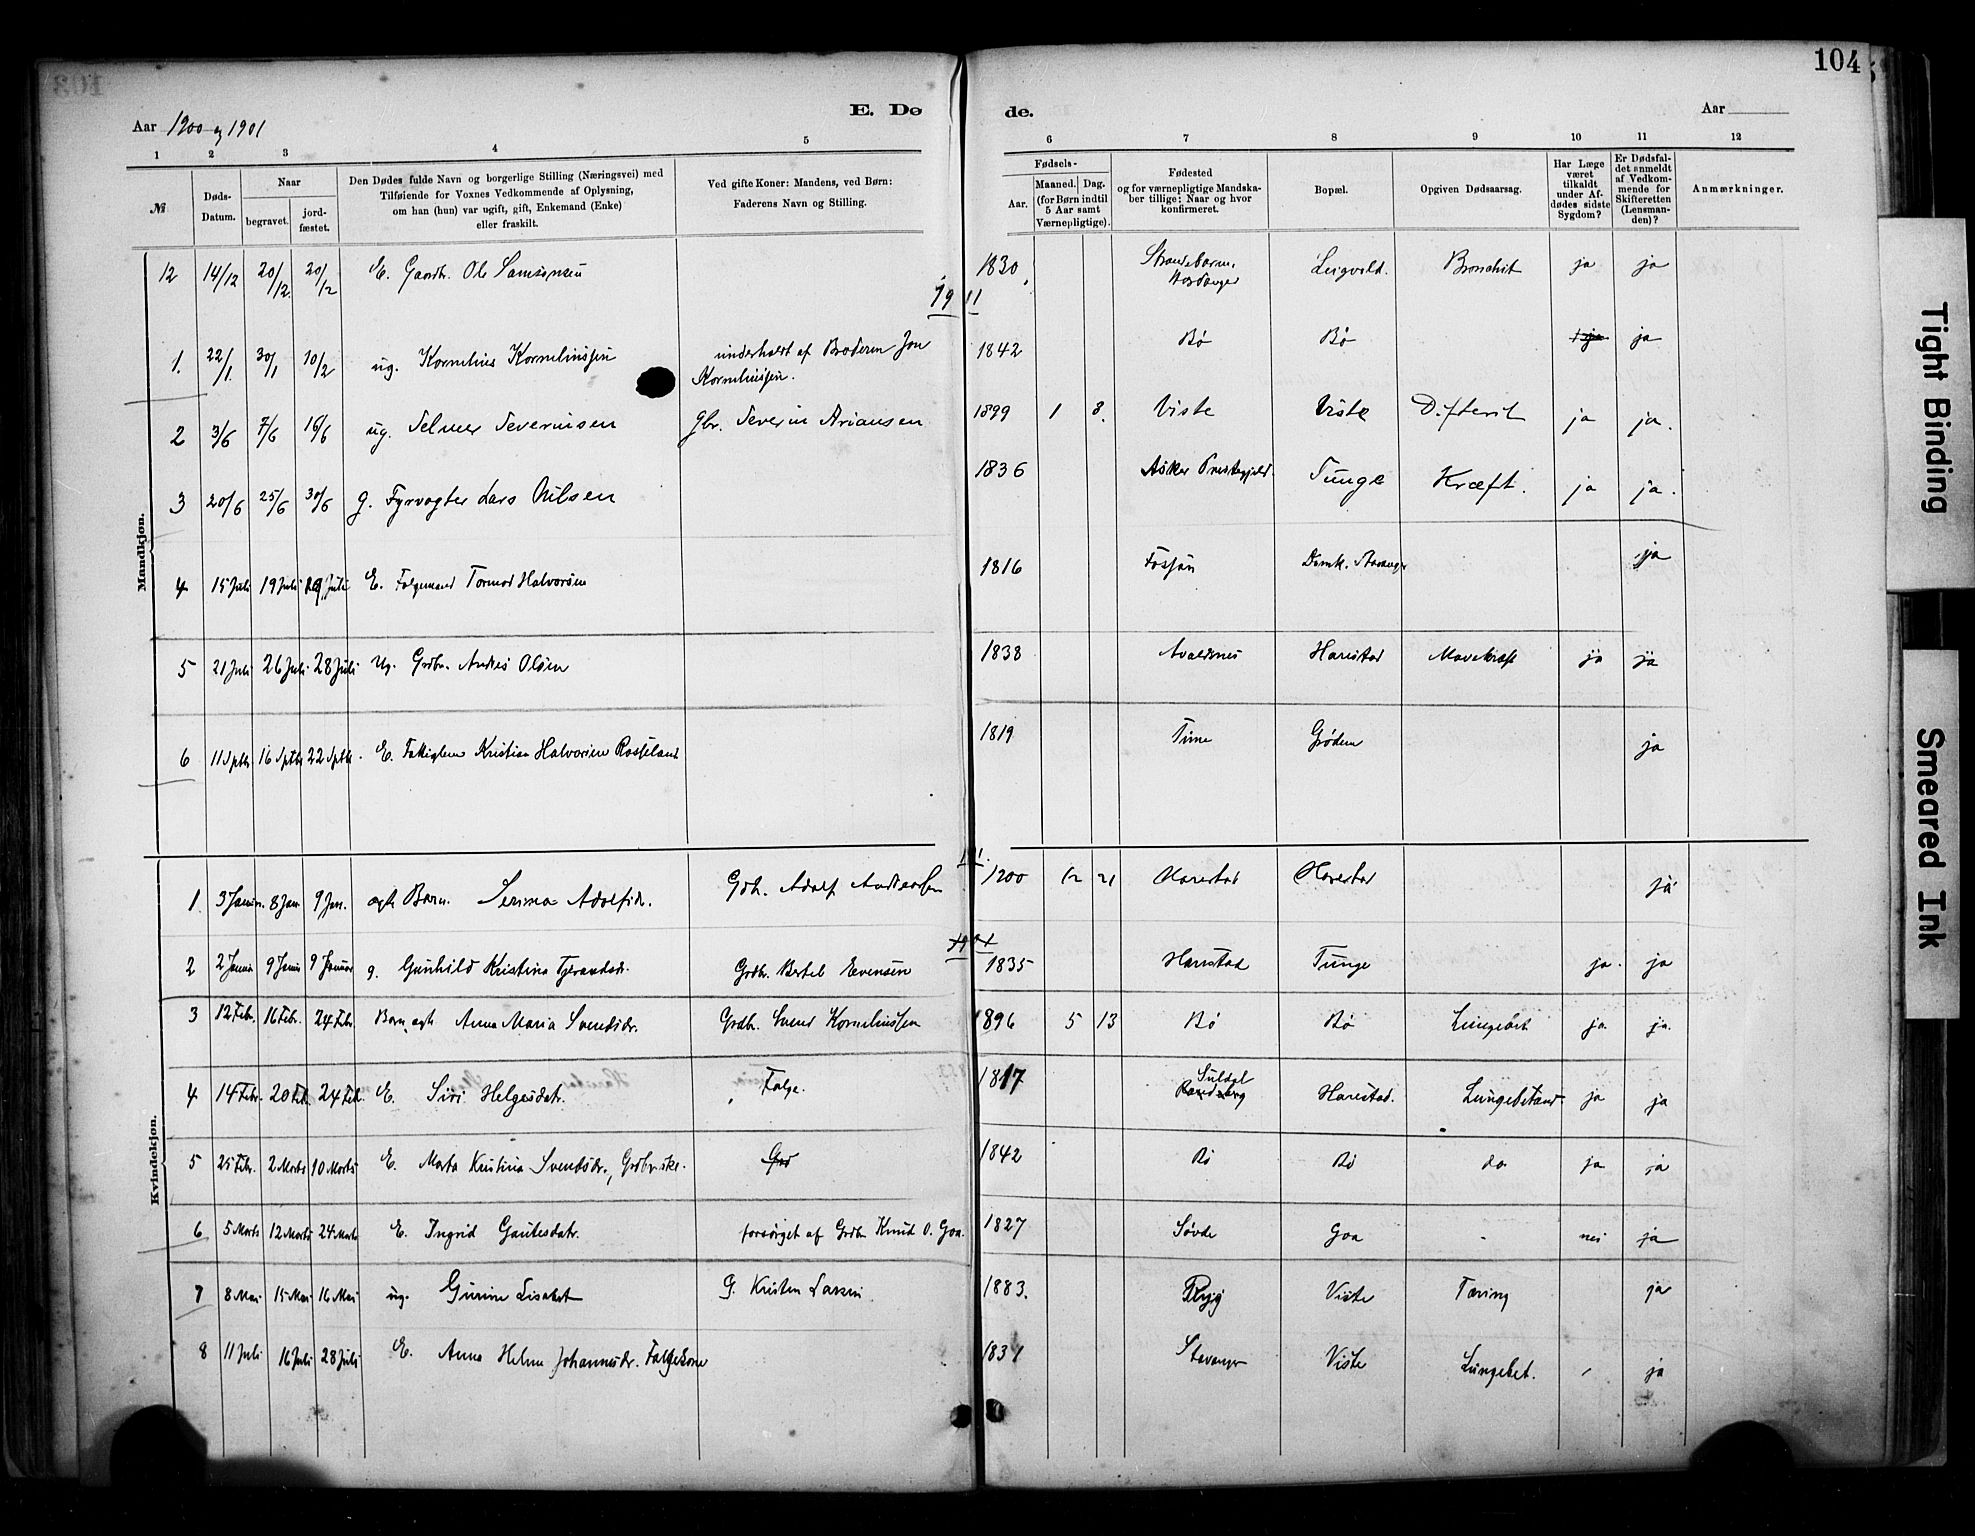 104
E. Dø de.
Aar 1900 og 1901
Aar
1 2 3 4 5 6 7 8 9 10 11 12
№
Døds-Datum.
Naar
begravet.
jord-fæstet.
Den Dødes fulde Navn og borgerlige Stilling (Næringsvei) med
Tilføiende for Voxnes Vedkommende af Oplysning,
om han (hun) var ugift, gift, Enkemand (Enke)
eller fraskilt.
Ved gifte Koner: Mandens, ved Børn:
Faderens Navn og Stilling.
Fødsels-
Aar.
Maaned. Dag.
(for Børn indtil
5 Aar samt
Værnepligtige).
Fødested
og for værnepligtige Mandska-
ber tillige: Naar og hvor
konfirmeret.
Bopæl.
Opgiven Dødsaarsag.
Har Læge
været
tilkaldt
under Af-
dødes sidste
Sygdom?
Er Dødsfal-
det anmeldt
af Vedkom-
mende for
Skifteretten
(Lensman-
den)?
Anmærkninger.
Mandkjøn.
12 14/12 20/12 20/12 E. Gaardb. Ole Samsonsen 1830 Strandebarm, Hardanger Leigvold. Bronchit ja ja
1. 22/1. 30/1 10/2 ug. Kornelius Korneliussen underholdt af Broderen Jon Korneliussen. 1842 Bø Bø ja
2 3/6 7/6 16/6 ug. Selmer Severinsen gbr. Severin Ariansen 1899 1 8. Viste Viste Difterit ja ja.
3 20/6 25/6 30/6 g. Fyrvogter Lars Nilsen 1836 Asker Prestegjeld. Tunge Kræft. ja ja.
4 15 Juli 19 Juli Juli E. Folgemand Tormod Halvorsen 1816 Fossan ja
5 21 Juli 26 Juli 28 Juli Ug. Grdbr. Andreas Olsen 1838 Avaldsnes Harestad Mavekræft ja ja
6 11 Sptbr 16 Sptbr 22 Sptbr. E. Kristian Halvorsen Rosseland 1819 Time Grødem ja
Kvindekjøn.
1. 3 Januar. 8 Jan 9 Jan. ægte Barn. Serina Adolfsdr. Gdbr. Adolf Andreassen 1900 12 21 Harestad Harestad ja
2 2 Januar 9 Januar 9 Januar g. Gunhild Kristina Tjerandsdr. Grdbr. Bertel Evensen 1835 Harestad Tunge ja. ja
3 12 Febr. 16 Febr. 24 Febr Barn, ægte Anna Maria Svendsdr. Grdbr. Svend Korneliussen 1896 5 13 Bø Bø ja. ja.
4 14 Febr. 20 Feb. 24 Feb. E. Siri Helgesdatr. Folge. 1817 Suldal Harestad. Lungebetænd. ja ja
5 25 Febr. 2 Marts 10 Marts E. Marta Kristina Svendsdr., Grdbrske. 1842 Bø Bø do ja ja
6 5 Marts 12 Marts 24 Marts E. Ingrid Gautesdatr. forsørget af Grdbr Knud O. Goa. 1827 Søvde Goa - nei ja
7 8 Mai 15 Mai 16 Mai ug. Gurine Lisabet G. Kristen Larsen 1883. Viste Tæring ja
8 11 Juli 16 Juli 28 Juli E. Anna Helene Johannesdr. Folgekone 1831 Stavanger Viste Lungebet. ja
Tight Binding
Smeared Ink